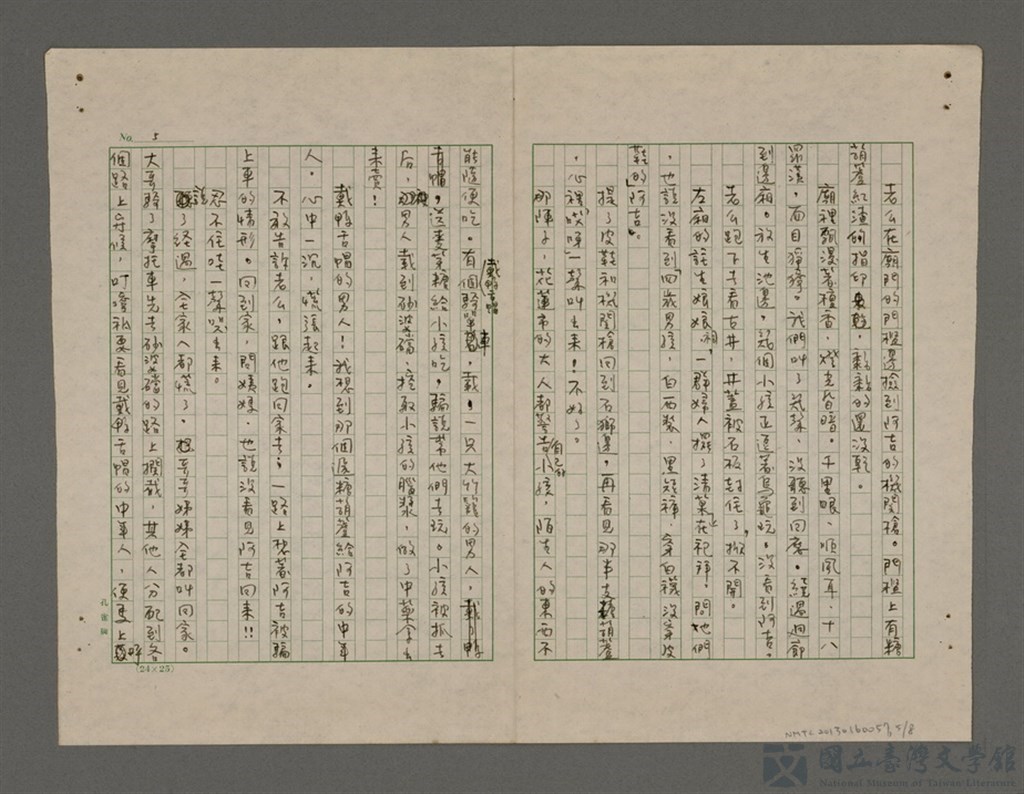 老么在廟門的門檻邊撿到阿吉的機關槍。門檻上有糖
葫蘆紅漬的指印,黏黏的還沒乾。
廟裡飄漫著檀香,燈光昏暗。千里眼、順風耳、十八
羅漢,面目猙獰。我們叫了幾聲,沒聽到回應。經過迴廊
到邊廂。放生池邊,幾個小孩正逗著烏龜玩。沒看到阿吉。
老么跑下去看古井,井蓋被石板封住了,掀不開。
左廂的註生娘娘祠,一群婦人擺了清菓在祀拜!問她們
,也說沒看到「四歲男孩,白西裝,黑短褲,穿白襪沒穿皮
鞋」的阿吉。
提了皮鞋和機關槍回到石獅邊,再看見那半支糖葫蘆
,心裡「噗咚」一聲叫出來!不好了。
那陣子,花蓮市的大人都警告自己的小孩,陌生人的東西不
能隨便吃。有個騎單車,戴鴨舌帽,戴一只大竹簍的男人,
青帽,送麥芽糖給小孩吃,騙說帶他們去玩。小孩被抓去
后,男人載到砂婆礑,挖取小孩的腦漿,做了中藥拿去
來賣!
戴鴨舌帽的男人!我想到那個送糖葫蘆給阿吉的中年
人。心中一沉,慌張起來。
不敢告訴老么,跟他跑回家去;一路上想著阿吉被騙
上車的情形。回到家,問姨媽,也說沒看見阿吉回來!!
忍不住哇一聲哭出來。
說了經過,全家人都慌了。把哥哥姊姊全都叫回家。
大哥騎了摩托車先去砂婆礑的路上攔截,其他人分配到各
個路上尋候,叮嚀祇要看見戴鴨舌帽的中年人,便馬上呼
No. 5
(24×25)
NMTL20130160057, 5/8
國立臺灣文學館
National Museum of Taiwan Literature